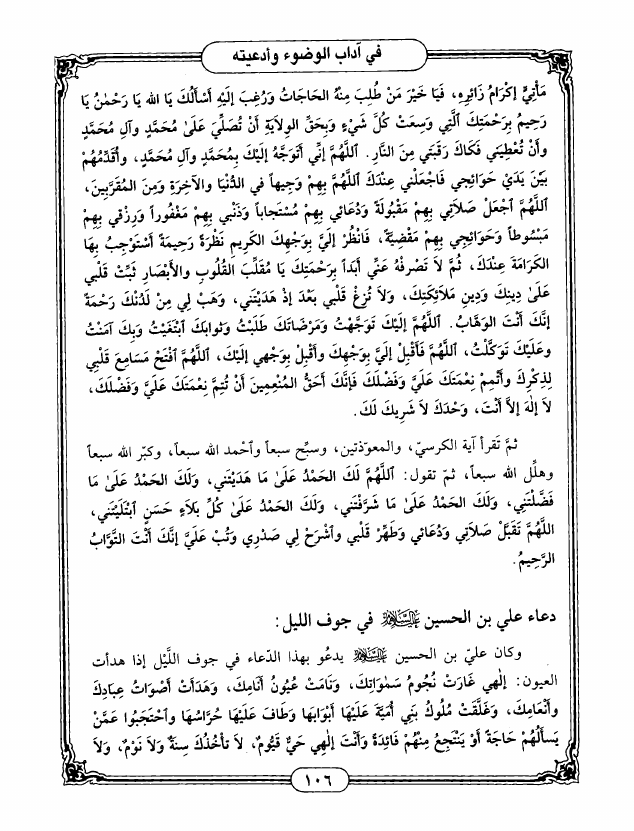 في آداب الوضوء وأدعيته
مَأْتِيٍّ إِكْرَامُ زَائِرِهِ، فَيَا خَيْرَ مَنْ طُلِبَ مِنْهُ الحَاجَاتُ وَرُغِبَ إِلَيْهِ أَسْأَلُكَ يَا الله يَا رَحْمٰنُ يَا
رَحِيمُ بِرَحْمَتِكَ ٱلَّتِي وَسِعَتْ كُلَّ شَيْءٍ وَبِحَقِّ الوِلاَيَةِ أَنْ تُصَلِّيَ عَلىٰ مُحَمَّدٍ وَآلِ مُحَمَّدٍ
وأَنْ تُعْطِيَنِي فَكَاكَ رَقَبَتِي مِنَ النَّارِ. ٱللَّهُمَّ إِنِّي أَتَوَجَّهُ إِلَيْكَ بِمُحَمَّدٍ وَآلِ مُحَمَّدٍ، وأُقَدِّمُهُمْ
بَيْنَ يَدَيْ حَوَائِجِي فَاجْعَلْنِي عِنْدَكَ ٱللَّهُمَّ بِهِمْ وَجِيهاً في الدُّنْيَا والآخِرَةِ وَمِنَ المُقَرَّبِينَ،
ٱللَّهُمَّ ٱجْعَلْ صَلاَتِي بِهِمْ مَقْبُولَةً وَدُعَائِي بِهِمْ مُسْتَجَاباً وَذَنْبِي بِهِمْ مَغْفُوراً وَرِزْقِي بِهِمْ
مَبْسُوطاً وَحَوَائِجِي بِهِمْ مَقْضِيَّةً، فَانْظُرْ إِلَيَّ بِوَجْهِكَ الكَرِيمِ نَظْرَةً رَحِيمَةً أَسْتَوْجِبُ بِهَا
الكَرَامَةَ عِنْدَكَ، ثُمَّ لاَ تَصْرِفْهُ عَنِّي أَبَداً بِرَحْمَتِكَ يَا مُقَلِّبَ القُلُوبِ والأَبْصَارِ ثَبِّتْ قَلْبِي
عَلىٰ دِينِكَ وَدِينِ مَلاَئِكَتِكَ، وَلاَ تُزِغْ قَلْبِي بَعْدَ إِذْ هَدَيْتَنِي، وَهَبْ لِي مِنْ لَدُنْكَ رَحْمَةً
إِنَّكَ أَنْتَ الوَهَّابُ. ٱللَّهُمَّ إِلَيْكَ تَوَجَّهْتُ وَمَرْضَاتَكَ طَلَبْتُ وثَوابَكَ ٱبْتَغَيْتُ وَبِكَ آمَنْتُ
وعَلَيْكَ تَوَكَّلْتُ، ٱللَّهُمَّ فَأَقْبِلْ إِلَيَّ بِوَجْهِكَ وأَقْبِلْ بِوَجْهِي إِلَيْكَ، ٱللَّهُمَّ ٱفْتَحْ مَسَامِعَ قَلْبِي
لِذِكْرِكَ وأَتْمِمْ نِعْمَتَكَ عَلَيَّ وَفَضْلَكَ فَإِنَّكَ أَحَقُّ المُنْعِمِينَ أَنْ تُتِمَّ نِعْمَتَكَ عَلَيَّ وَفَضْلَكَ،
لاَ إِلٰهَ إِلاَّ أَنْتَ، وَحْدَكَ لاَ شَرِيكَ لَكَ.
ثمّ تَقرأ آية الكرسيّ، والمعوّذتين، وسبِّح سبعاً وٱحْمد الله سبعاً، وكبّر الله سبعاً
وهلِّل الله سبعاً، ثمّ تقول: ٱللَّهُمَّ لَكَ الحَمْدُ عَلىٰ مَا هَدَيْتَنِي، وَلَكَ الحَمْدُ عَلىٰ مَا
فَضَّلْتَنِي، وَلَكَ الحَمْدُ عَلىٰ مَا شَرَّفْتَنِي، وَلَكَ الحَمْدُ عَلىٰ كُلِّ بَلاَءٍ حَسَنٍ ٱبْتَلَيْتَنِي،
ٱللَّهُمَّ تَقَبَّلْ صَلاَتِي وَدُعَائِي وَطَهِّرْ قَلْبِي وٱشْرَحْ لِي صَدْرِي وَتُبْ عَلَيَّ إِنَّكَ أَنْتَ التَّوَّابُ
الرَّحِيمُ.
دعاء علي بن الحسين عليه السلام في جوف الليل:
وكان عليّ بن الحسين عليه السلام يدعُو بهذا الدّعاء في جوف اللَّيْل إذا هدأت
العيون: إِلٰهِي غَارَتْ نُجُومُ سَمٰوَاتِكَ، وَنَامَتْ عُيُونُ أَنَامِكَ، وَهَدَأَتْ أَصْوَاتُ عِبَادِكَ
وأَنْعَامِكَ، وَغَلَّقَتْ مُلُوكُ بَنِي أُمَيَّةَ عَلَيْهَا أَبْوَابَهَا وَطَافَ عَلَيْهَا حُرَّاسُهَا وٱحْتَجَبُوا عَمَّنْ
يَسأَلُهُمْ حَاجَةً أَوْ يَنْتَجِعُ مِنْهُمْ فَائِدَةً وَأَنْتَ إِلٰهِي حَيٌّ قَيُّومٌ، لاَ تأخُذُكَ سِنَةٌ وَلاَ نَوْمٌ، وَلاَ
١٠٦